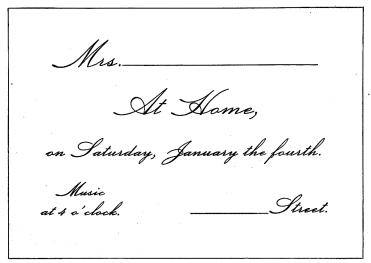 Mrs. ____________
At Home,
on Saturday, January the fourth.
Music
at 4 o'clock.
________ Street.